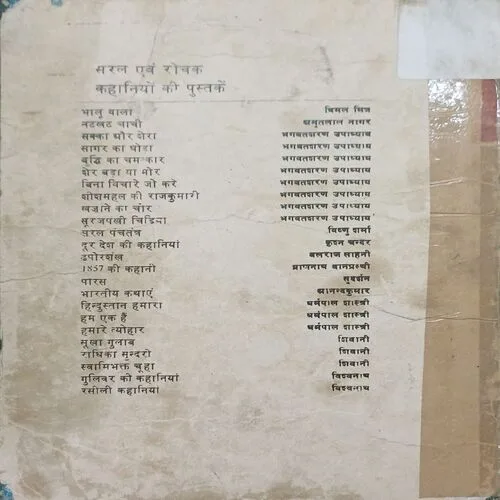 सरल एवं रोचक
कहानियों की पुस्तकें
भालू वाला बिमल मित्र
नटखट चाची अमृतलाल नागर
सक्का और शेरा भगवतशरण उपाध्याय
सागर का घोड़ा भगवतशरण उपाध्याय
बुद्धि का चमत्कार भगवतशरण उपाध्याय
शेर बड़ा या मोर भगवतशरण उपाध्याय
बिना विचारे जो करे भगवतशरण उपाध्याय
शीशमहल की राजकुमारी भगवतशरण उपाध्याय
खजाने का चोर भगवतशरण उपाध्याय
सूरजपंखी चिड़िया भगवतशरण उपाध्याय
सरल पंचतंत्र विष्णु शर्मा
दूर देश की कहानियां कृश्न चन्दर
ढपोरशंख बलराज साहनी
1857 की कहानी प्राणनाथ वानप्रस्थी
पारस सुदर्शन
भारतीय कथाएं आनन्दकुमार
हिन्दुस्तान हमारा धर्मपाल शास्त्री
हम एक हैं धर्मपाल शास्त्री
हमारे त्योहार धर्मपाल शास्त्री
सूखा गुलाब शिवानी
राधिका सुन्दरी शिवानी
स्वामिभक्त चूहा शिवानी
गुलिवर की कहानियां विश्वनाथ
रसीली कहानियां विश्वनाथ